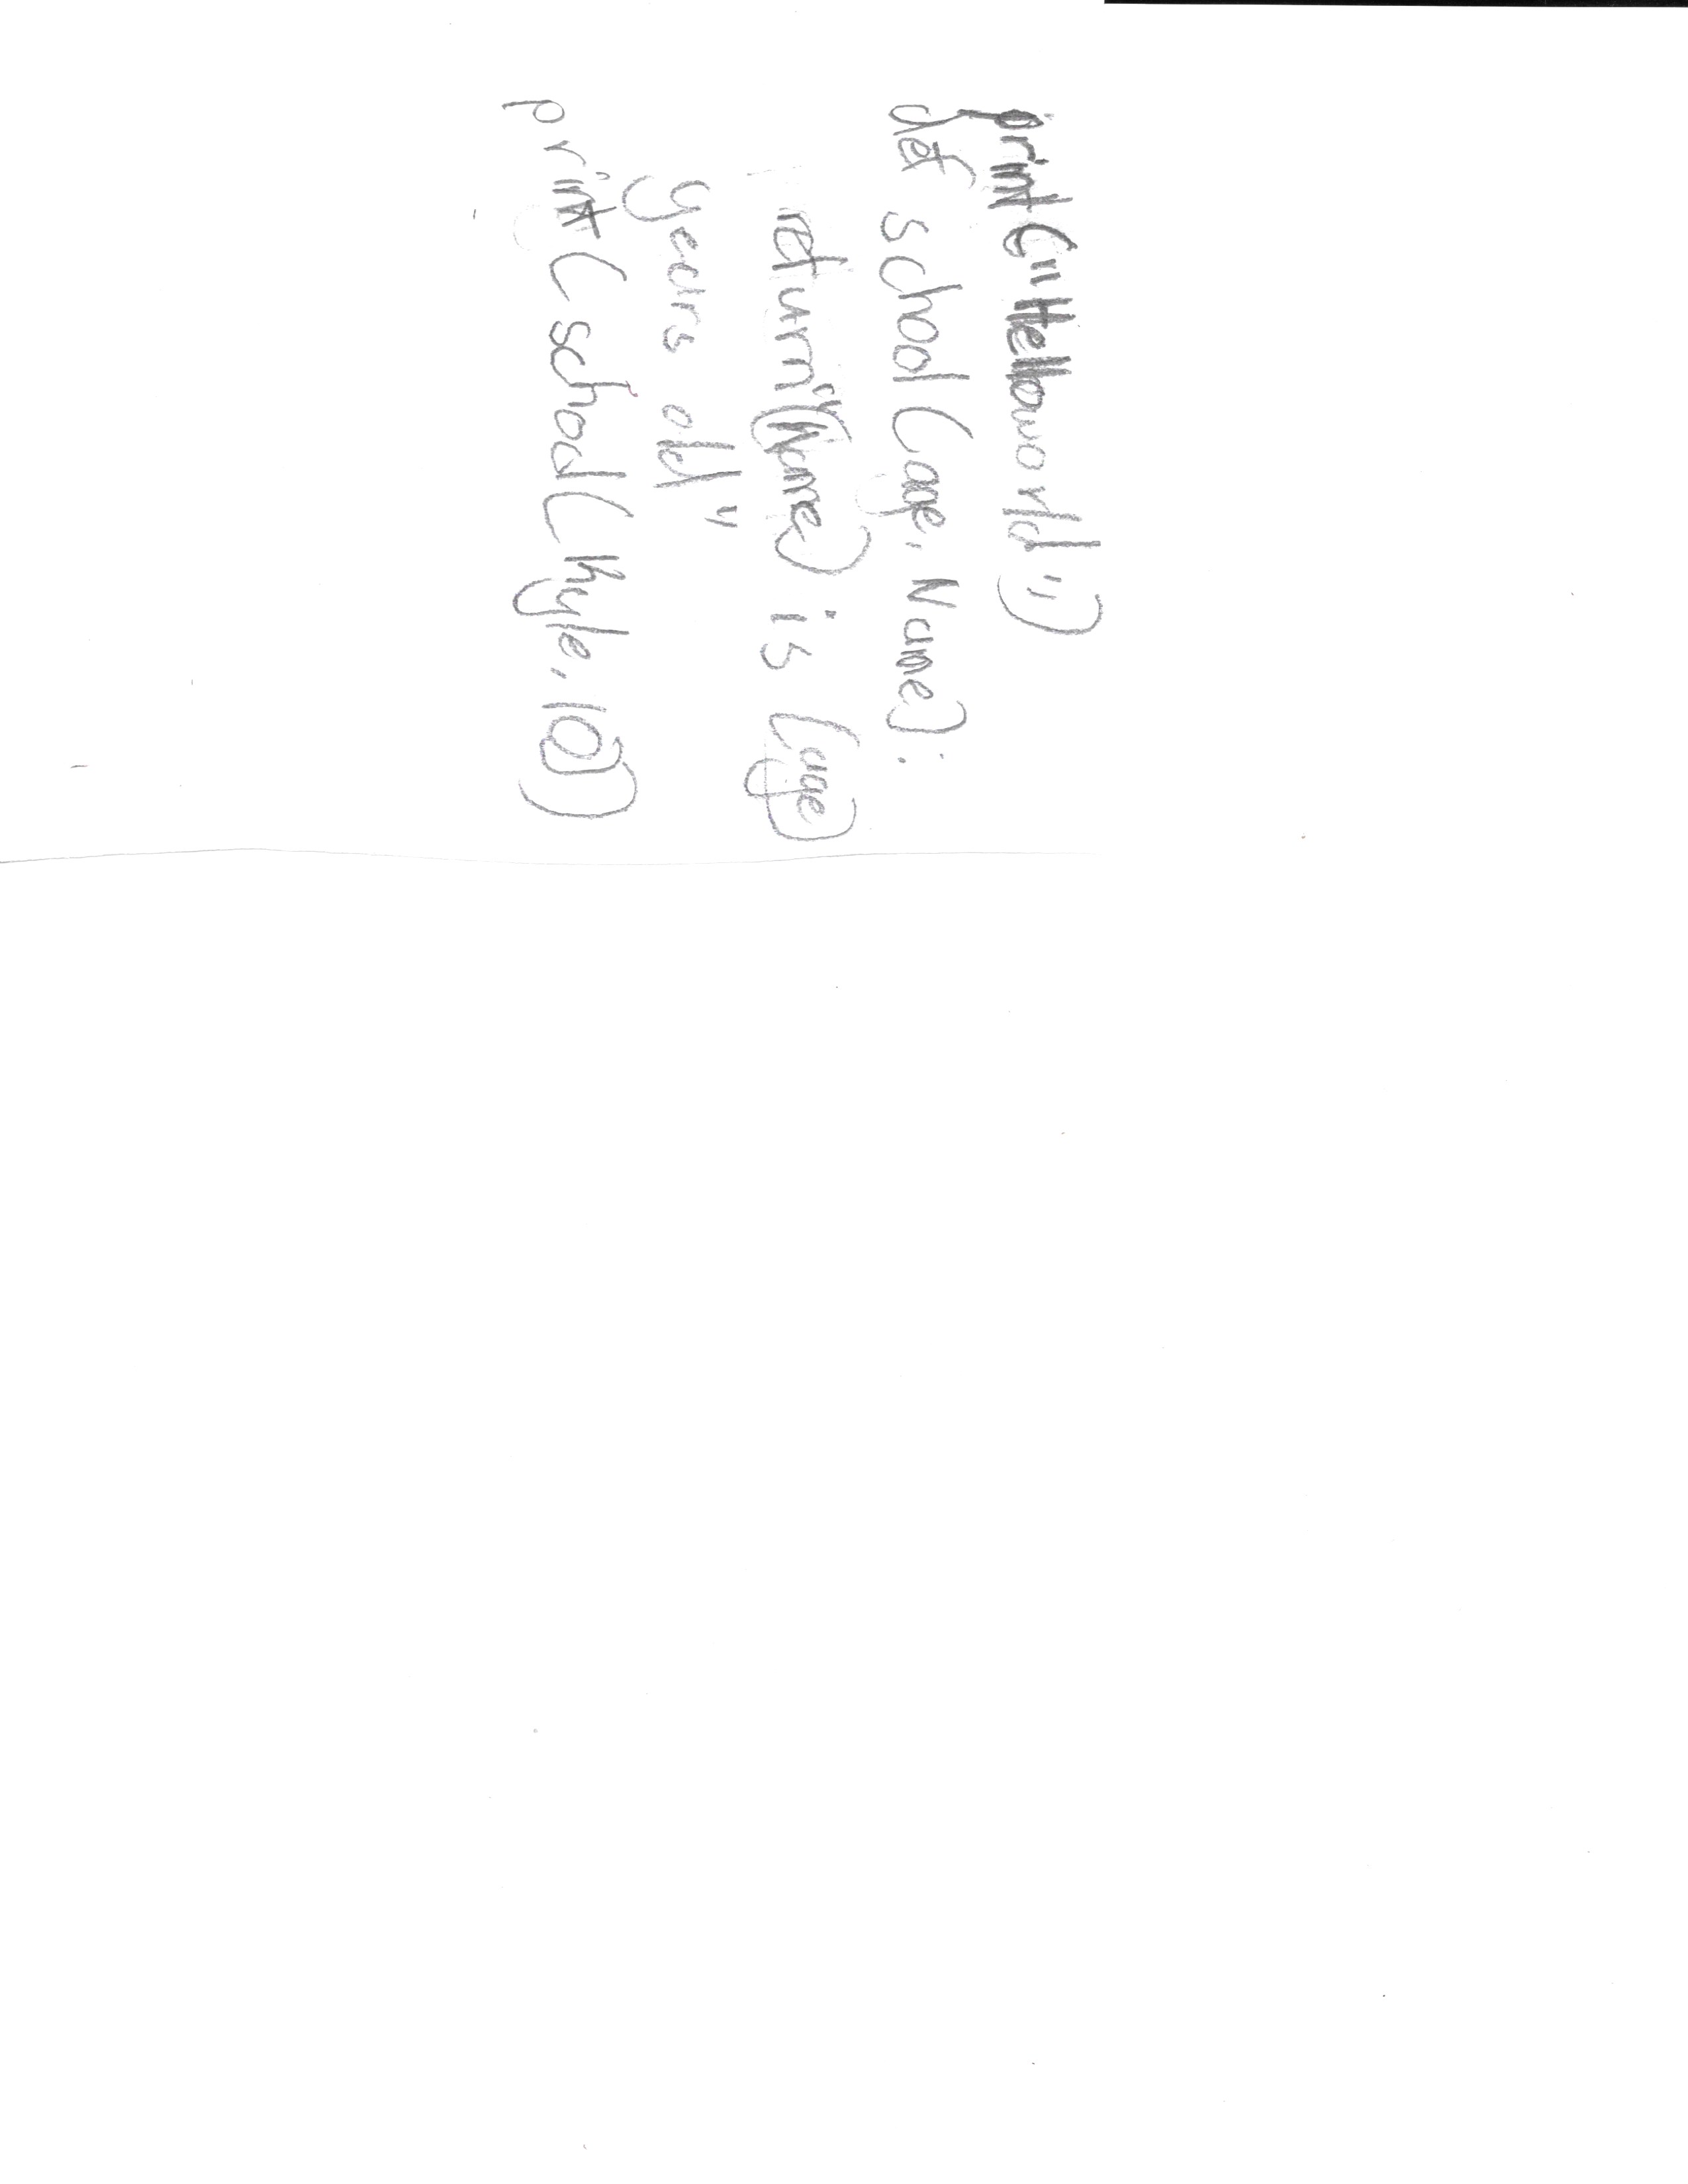 print("Helloworld")
def school(age, Name):
return"(Name) is (age)
years old"
print(school(kyle, 10))